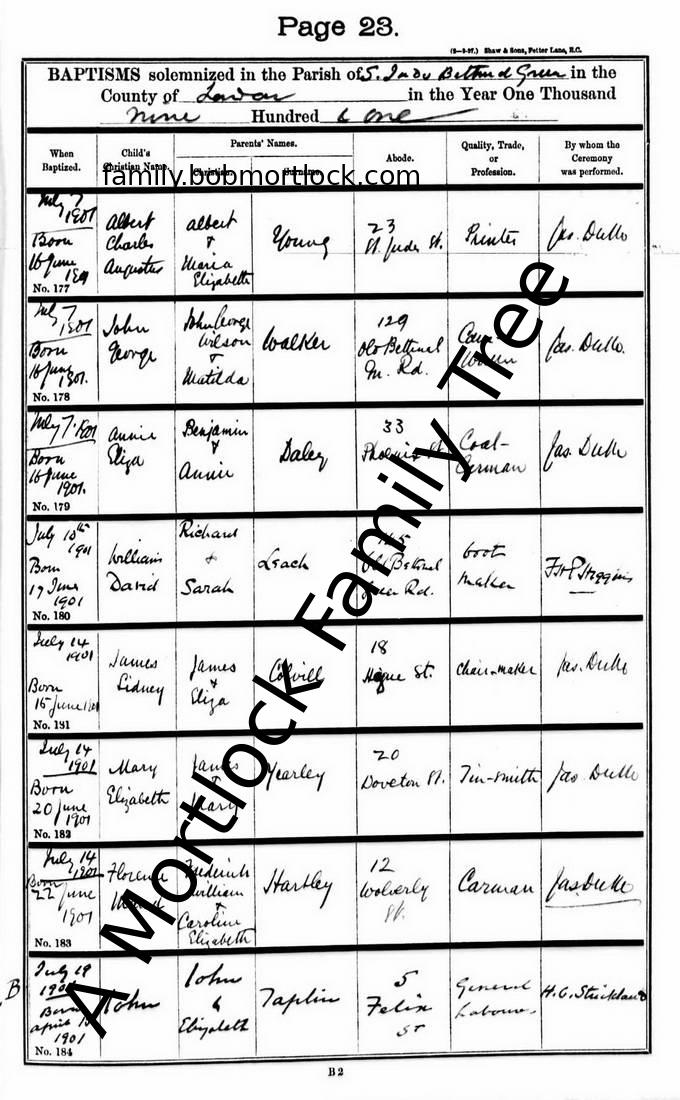 Page 23.
Shaw & Sons, Fetter Lane, E.C.
BAPTISMS solemnized in the Parish of S. Jude Bethnal Green in the
County of London in the Year One Thousand
Nine Hundred & one
When Baptized.
Child's Christian Name.
Parents' Names.
Christian.
Surname.
Abode.
Quality, Trade, or Profession.
By whom the Ceremony was performed.
family.bobmortlock.com
July 7 1901
Born 16 June
No. 177
Albert Charles Augustus
Albert & Maria Elizabeth
Young
23 St. Judes St.
Printer
Jas. Duke
July 7 1901
Born 16 June 1901.
No. 178
John George
John George Wilson & Matilda
Walker
129 Old Bethnal Gn. Rd.
Jas. Duke.
July 7. 1901
Born 16 June 1901.
No. 179
Annie Eliza
Benjamin & Annie
Daley
33 St
Coal-Carman
Jas. Duke
July 10th 1901
Born 17 June 1901
No. 180
William David
Richard & Sarah
Leach
Old Bethnal Green Rd.
boot maker
Higgins
July 14 1901
Born 15 June 1901
No. 181
James Sidney
James & Eliza
Colvill
18 Hague St.
Chair-maker
Jas. Duke
July 14 1901
Born 20 June 1901
No. 182
Mary Elizabeth
James & Mary
Yearley
20 Doveton St.
Tin-smith
Jas. Duke
July 14 1901
Born 22 June 1901
No. 183
Florence
Frederick William & Caroline Elizabeth
Hartley
12 Wolverly St.
Carman
Jas. Duke
B
July 19 1901
Born April 1901
No. 184
John
John & Elizabeth
Taplin
5 Felix St
General Labourer
H. C. Strickland
B 2
A Mortlock Family Tree